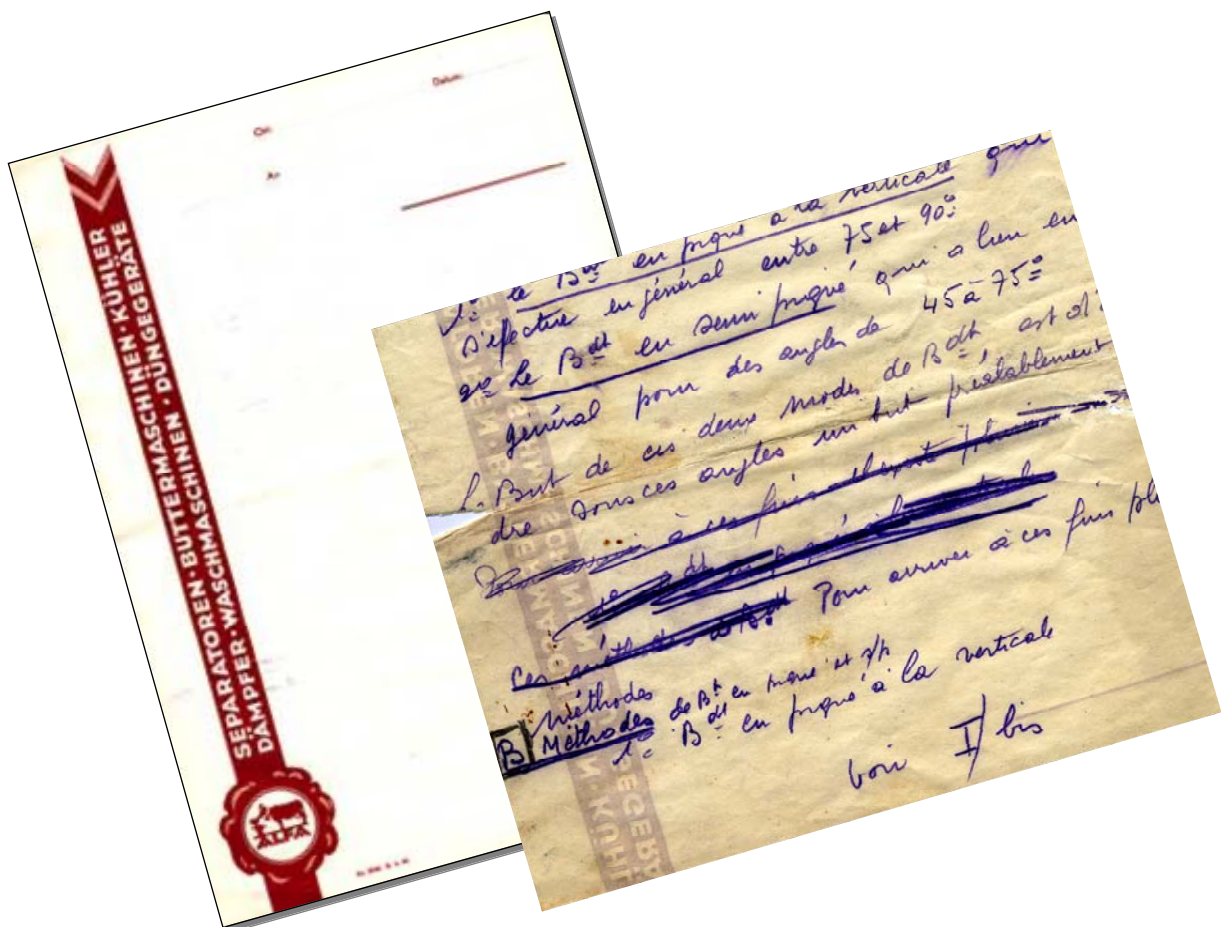 Datum:
Ort:
An
SEPARATOREN · BUTTERMASCHINEN · KÜHLER
DÄMPFER · WASCHMASCHINEN · DÜNGEGERÄTE
ALFA
1º le Bdt en piqué à la verticale qui
s'efectue en général entre 75 et 90º
2º Le Bdt en semi piqué qui a lieu en
général pour des angles de 45 à 75º
But de ces deux modes de Bdt est d'
dre sous ces angles un but préalablement
à ces fins
Ces méthodes Pour arriver à ces fins
méthodes
B Méthodes de Bt en piqué et s/p
1º Bdt en piqué à la verticale
voir I/ bis